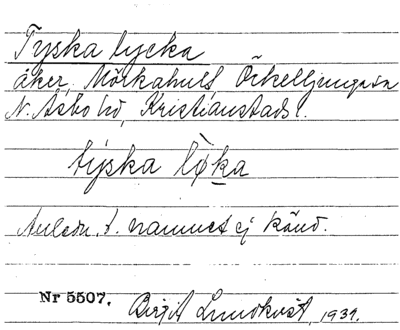 Tyska lycka
åker, Mörkahult, Örkelljunga sn
N. Åsbo hd, Kristianstads l.
týska lø̀ka
Anledn. t. namnet ej känd.
Nr 5507. Birgit Lundkvist, 1931.